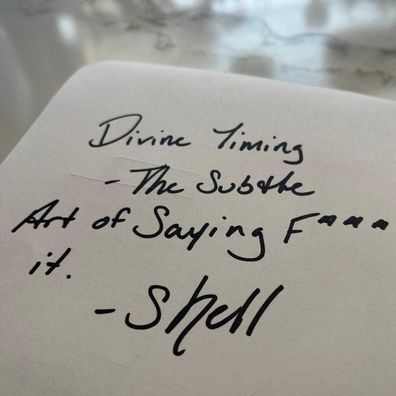 Divine Timing
- The Subtle
Art of Saying F***
it.
- Shell